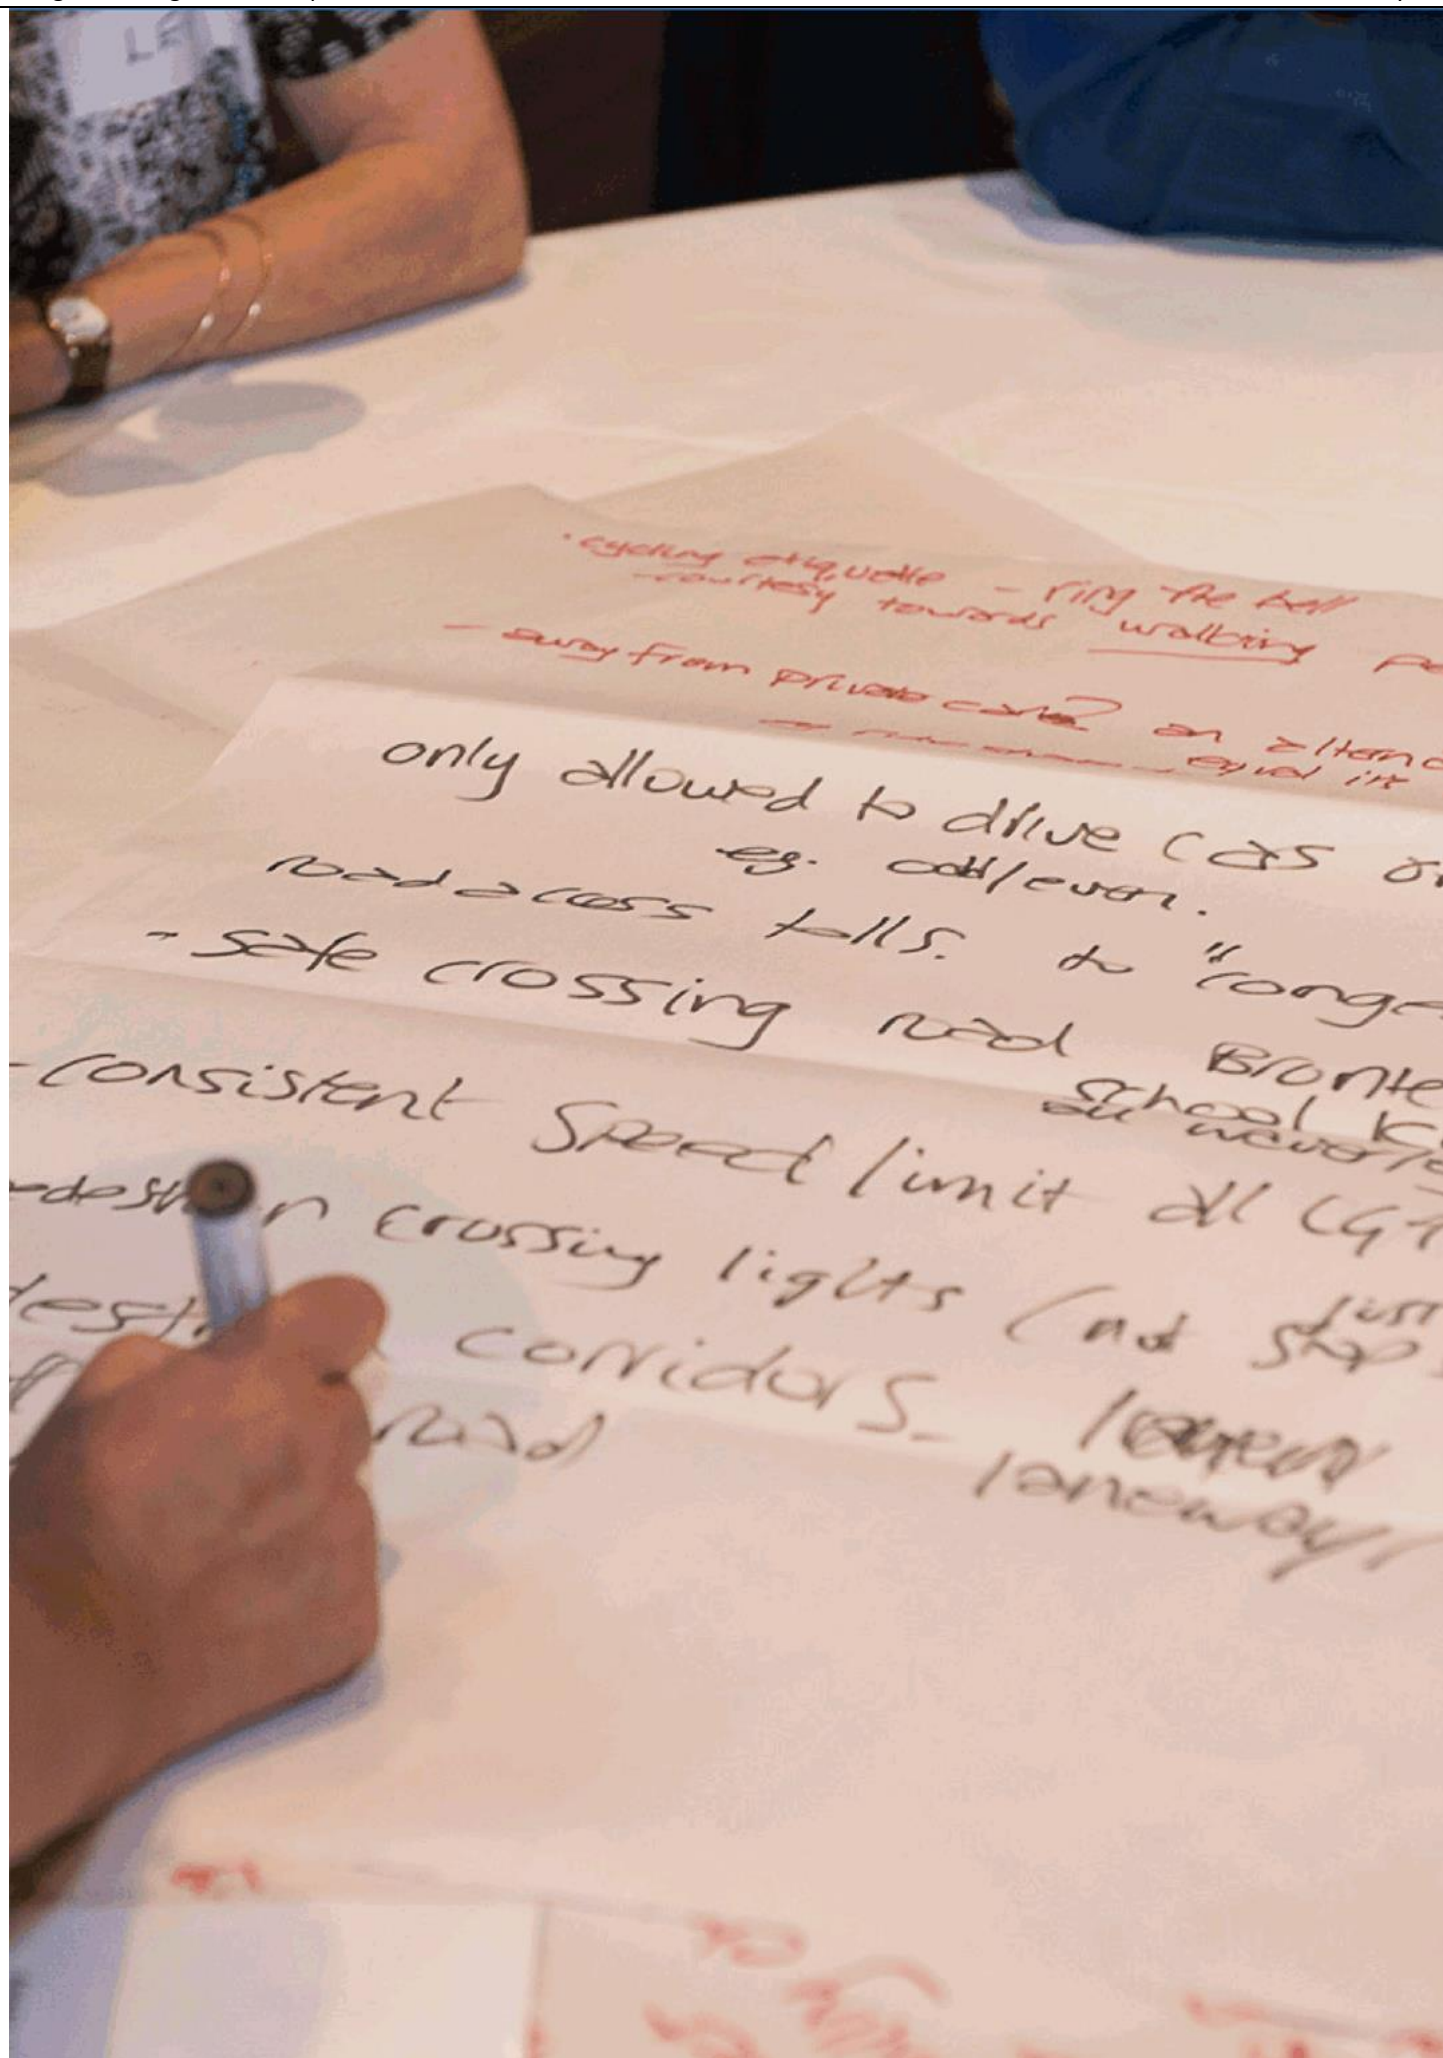 LE
· cycling etiquette - ring the bell
- courtesy towards walking pe
- away from private cars? an alterna
equal in
only allowed to drive cars on
eg. odd/even.
road access tolls. to "conge
- safe crossing road Bronte
school k
all waverle
- consistent speed limit all LGA
edestr n crossing lights (not just
stop s
dest corridors. laneways
road